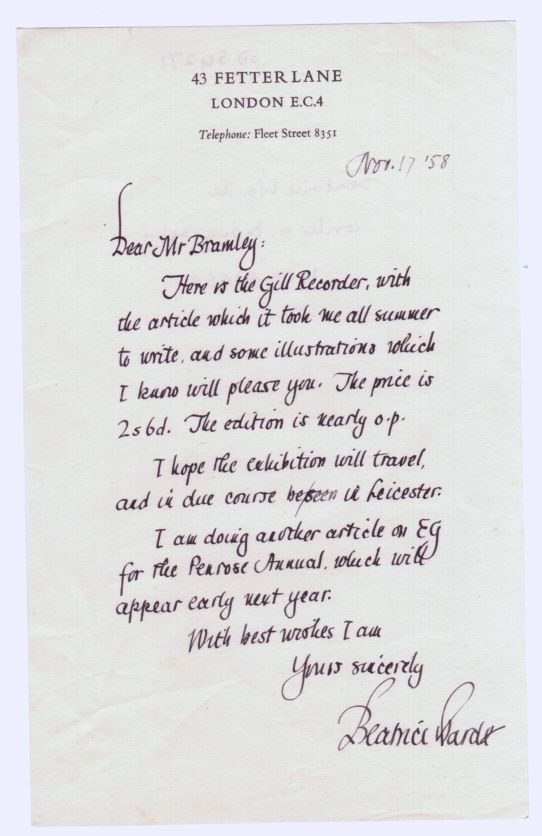 43 FETTER LANE
LONDON E.C.4
Telephone: Fleet Street 8351
Nov. 17 '58
Dear Mr Bramley:
Here is the Gill Recorder, with
the article which it took me all summer
to write, and some illustrations which
I know will please you. The price is
2s6d. The edition is nearly o.p.
I hope the exhibition will travel,
and in due course be seen in Leicester.
I am doing another article on EG
for the Penrose Annual, which will
appear early next year.
With best wishes I am
Yours sincerely
Beatrice Warde